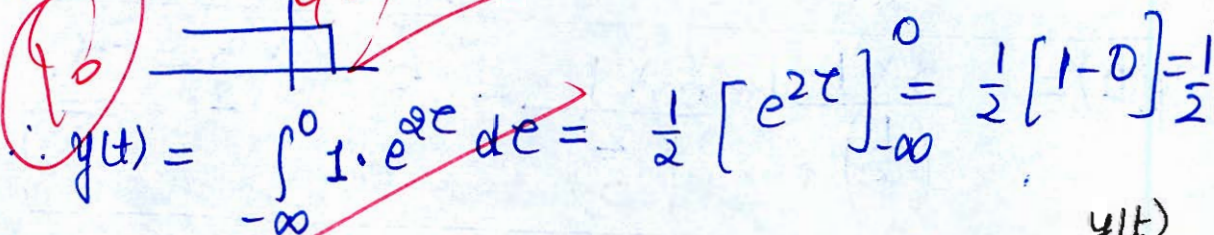 ∴ y(t) = ∫_{-∞}^{0} 1· e^{2τ} dτ = 1/2 [e^{2τ}]_{-∞}^{0} = 1/2 [1-0] = 1/2
y(t)